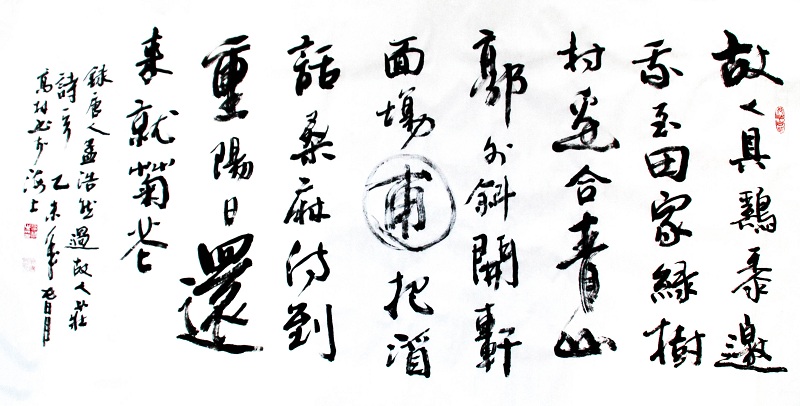 故人具鷄黍邀
我至田家綠樹
村邊合青山
郭外斜開軒
面場圃把酒
話桑麻待到
重陽日還
來就菊花
錄唐人孟浩然過故人莊
詩 乙未年 月
海上